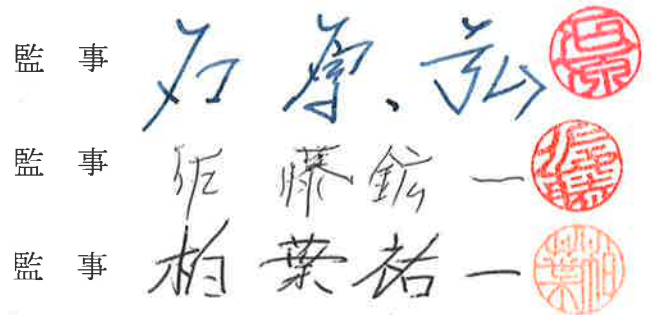 監 事 石原 弘 石原
監 事 佐藤鉱一 佐藤
監 事 柏葉祐一 柏葉